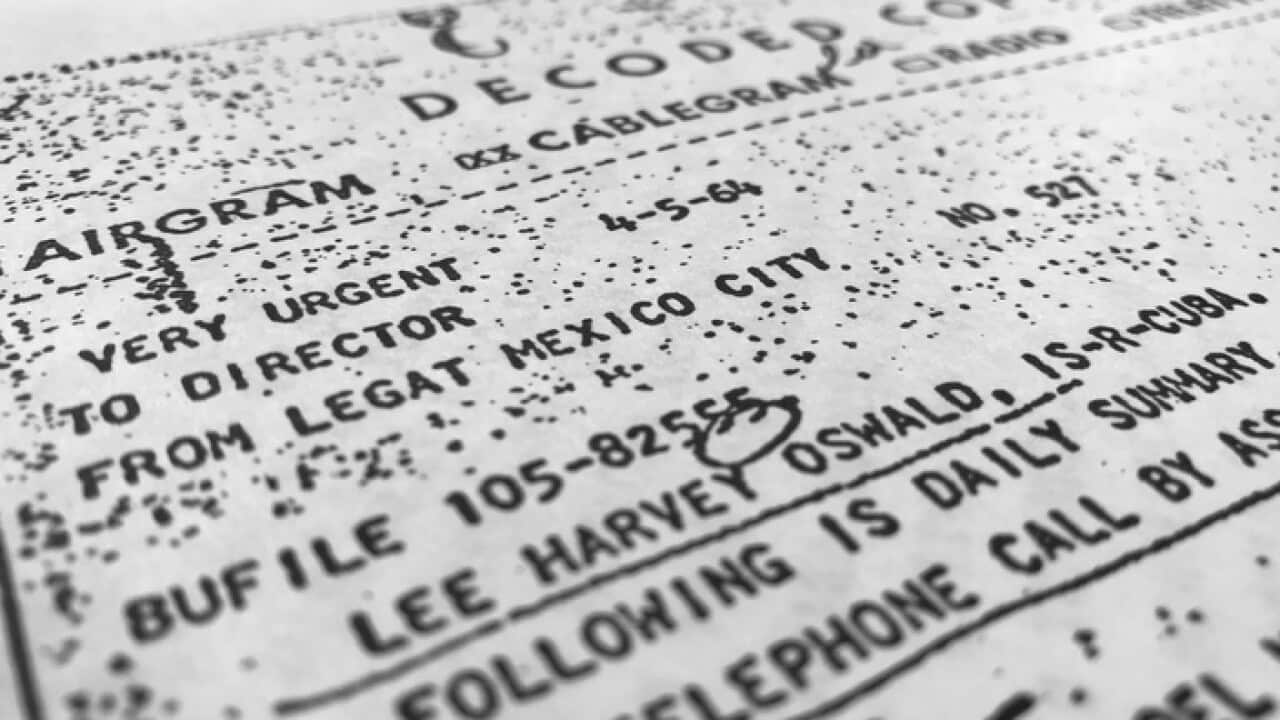 DECODED
AIRGRAM xx CABLEGRAM RADIO
4-5-64 NO. 527
VERY URGENT
TO DIRECTOR
FROM LEGAT MEXICO CITY
BUFILE 105-82555
LEE HARVEY OSWALD, IS-R-CUBA.
FOLLOWING IS DAILY SUMMARY
TELEPHONE CALL BY